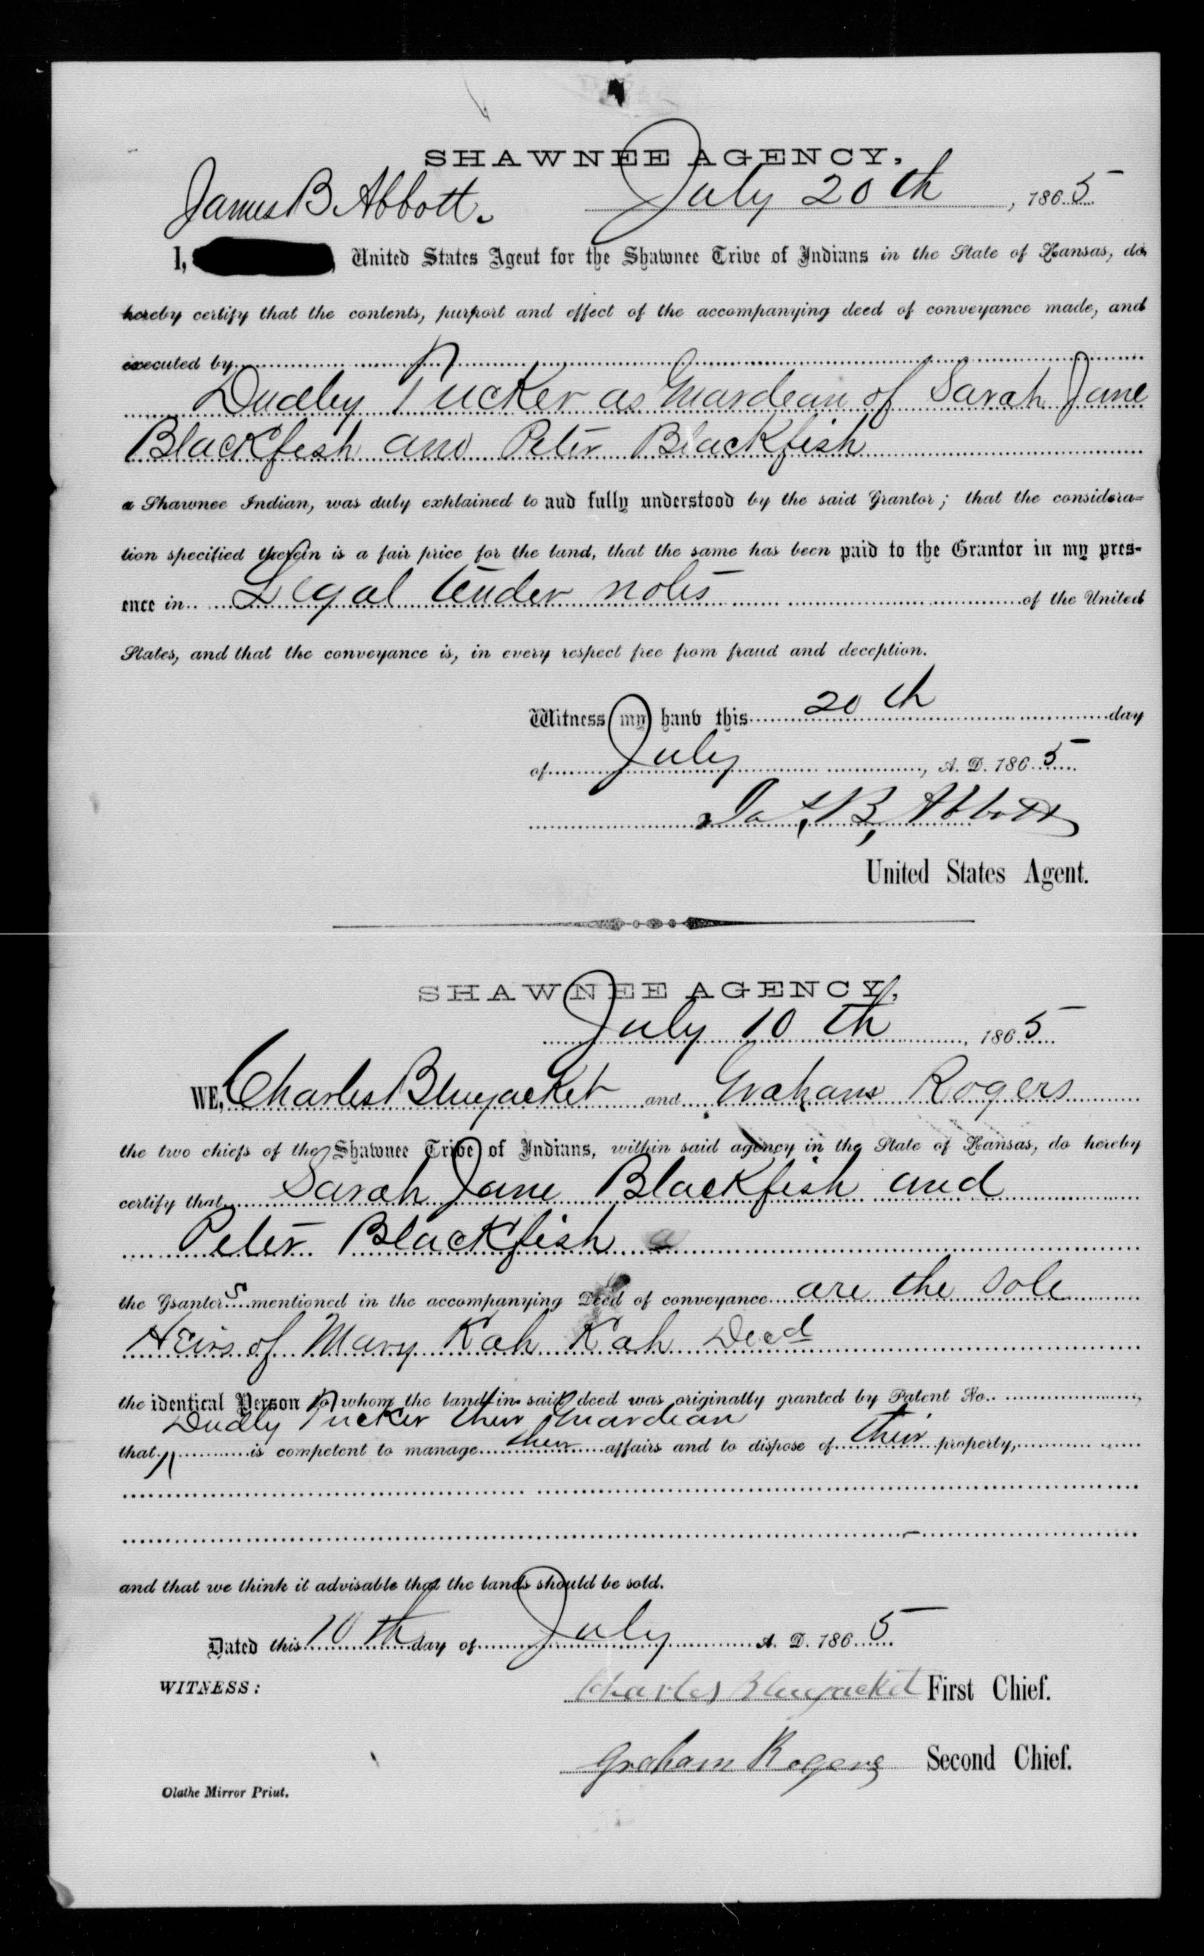 SHAWNEE AGENCY,
July 20th, 1865
James B. Abbott.
I, United States Agent for the Shawnee Trive of Indians in the State of Kansas, do
hereby certify that the contents, purport and effect of the accompanying deed of conveyance made, and
executed by
Dudley Tucker as Guardean of Sarah Jane
Blackfish and Peter Blackfish
a Shawnee Indian, was duly explained to and fully understood by the said Grantor; that the considera-
tion specified therein is a fair price for the land, that the same has been paid to the Grantor in my pres-
ence in Legal tender notes of the United
States, and that the conveyance is, in every respect free from fraud and deception.
Witness my hand this 20th day
of July, A. D. 1865
Jas. B. Abbott
United States Agent.
SHAWNEE AGENCY,
July 10th, 1865
WE, Charles Bluejacket and Graham Rogers
the two chiefs of the Shawnee Trive of Indians, within said agency in the State of Kansas, do hereby
certify that Sarah Jane Blackfish and
Peter Blackfish
the Grantors mentioned in the accompanying Deed of conveyance are the sole
Heirs of Mary Kah Kah Decd
the identical Person to whom the land in said deed was originally granted by Patent No.
Dudly Tucker their Guardian
that is competent to manage their affairs and to dispose of their property,
and that we think it advisable that the lands should be sold.
Dated this 10th day of July A. D. 1865
WITNESS:
Charles Bluejacket First Chief.
Graham Rogers Second Chief.
Olathe Mirror Print.